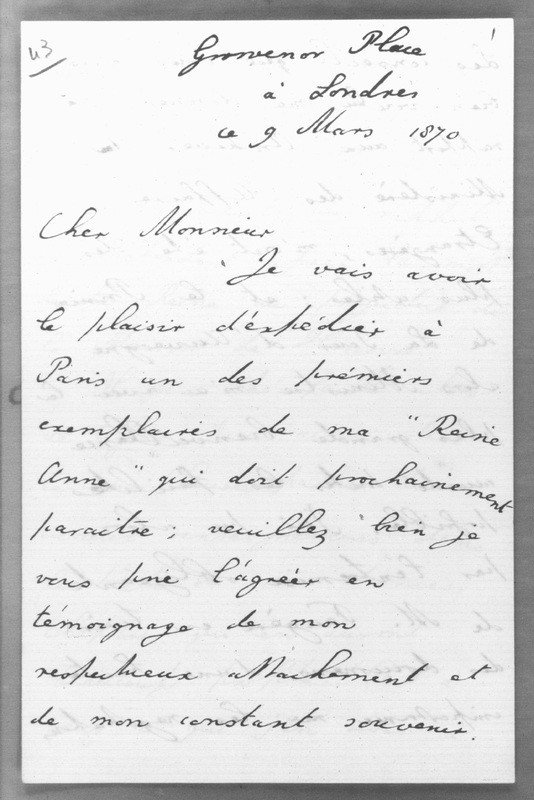 43
Grosvenor Place
à Londres
ce 9 Mars 1870
Cher Monsieur
Je vais avoir
le plaisir d'éxpédier à
Paris un des prémiers
exemplaires de ma "Reine
Anne" qui doit prochainement
paraitre; veuillez bien je
vous prie l'agréer en
témoignage de mon
respectueux attachement et
de mon constant souvenir.